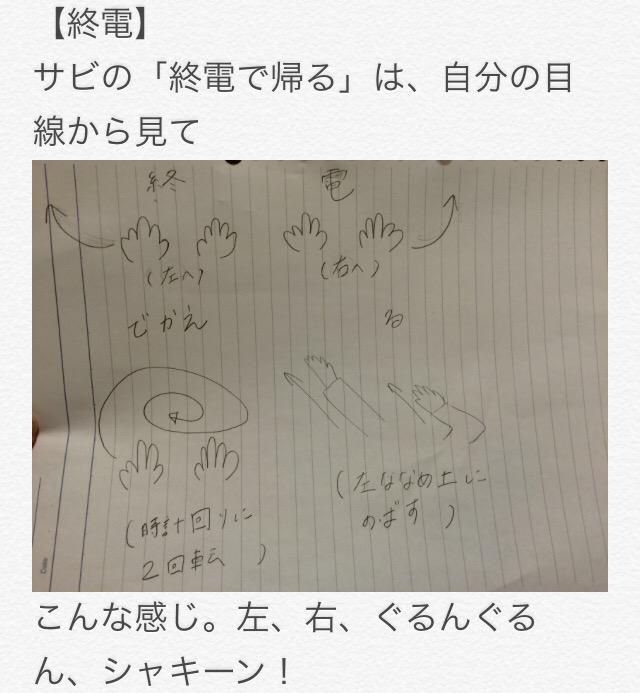 【終電】
サビの「終電で帰る」は、自分の目
線から見て
終 電
(左へ) (右へ)
でかえ る
(時計回りに
2回転 )
(左ななめ上に
のばす )
こんな感じ。左、右、ぐるんぐる
ん、シャキーン！